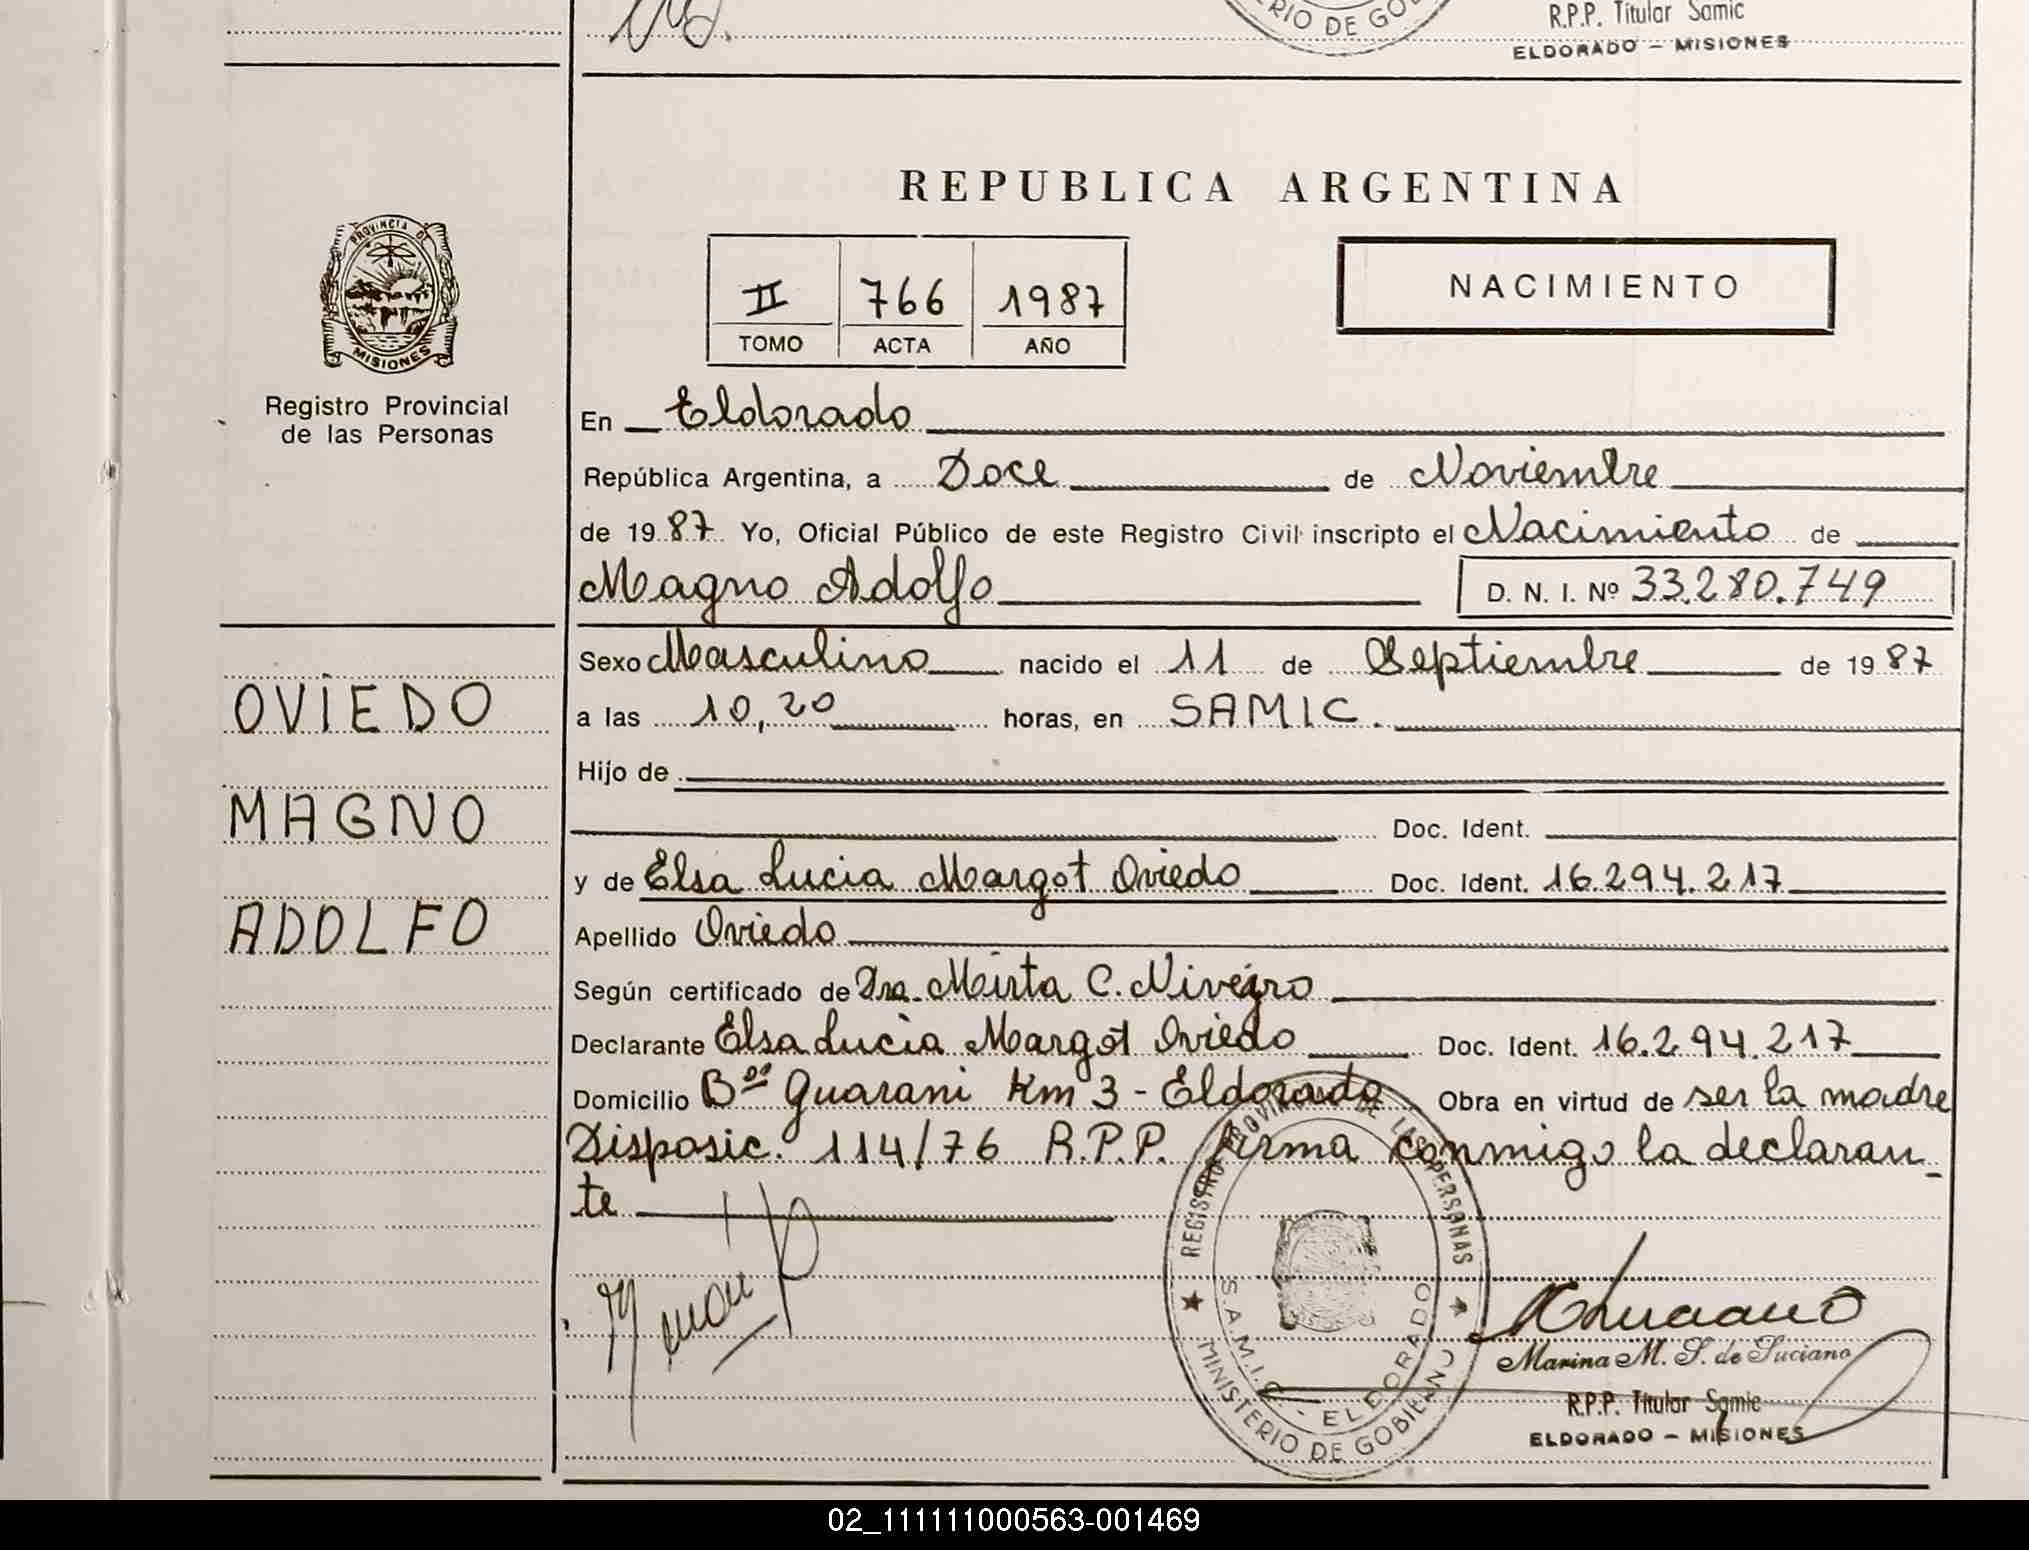 RIO DE GOB
R.P.P. Titular Samic
ELDORADO – MISIONES
PROVINCIA DE
MISIONES
Registro Provincial
de las Personas
OVIEDO
MAGNO
ADOLFO
REPUBLICA ARGENTINA
II 766 1987
TOMO ACTA AÑO
NACIMIENTO
En Eldorado
República Argentina, a Doce de Noviembre
de 1987 Yo, Oficial Público de este Registro Civil inscripto el Nacimiento de
Magno Adolfo D. N. I. Nº 33.280.749
Sexo Masculino nacido el 11 de Septiembre de 1987
a las 10,20 horas, en SAMIC.
Hijo de
Doc. Ident.
y de Elsa Lucia Margot Oviedo Doc. Ident. 16.294.217
Apellido Oviedo
Según certificado de Dra. Mirta C. Nivegro
Declarante Elsa Lucia Margot Oviedo Doc. Ident. 16.294.217
Domicilio Bº Guarani Km 3 - Eldorado Obra en virtud de ser la madre
Disposic. 114/76 R.P.P. firma conmigo la declaran_
te
REGISTRO PROVINCIAL DE LAS PERSONAS
S.A.M.I.C. - ELDORADO
MINISTERIO DE GOBIERNO
Marina M. S. de Luciano
R.P.P. Titular Samic
ELDORADO – MISIONES
02_111111000563-001469